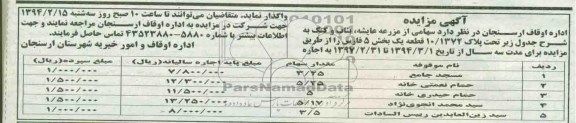 آگهی مزایده
اداره اوقاف ارسنجان در نظر دارد سهامی از مزرعه عایشه، بناب و کتک به
شرح جدول زیر تحت پلاک ۱۰/۱۳۷۲ قطعه یک بخش ۵ فارس را از طریق
مزایده برای مدت سه سال از تاریخ ۱۳۹۴/۳/۱ تا ۱۳۹۷/۲/۳۱ به اجاره
واگذار نماید. متقاضیان می‌توانند تا ساعت ۱۰ صبح روز سه‌شنبه ۱۳۹۴/۲/۱۵
جهت شرکت در مزایده به اداره اوقاف ارسنجان مراجعه نمایند و جهت
اطلاعات بیشتر با شماره ۵۸۸۰-۴۳۵۲۳۸۸۰ تماس حاصل فرمایند.
اداره اوقاف و امور خیریه شهرستان ارسنجان
ردیف نام موقوفه مقدار سهام مبلغ پایه اجاره سالیانه (ریال) مبلغ سپرده (ریال)
۱ مسجد جامع ۳/۲۵ ۷/۸۰۰/۰۰۰ ۱/۰۰۰/۰۰۰
۲ حمام نعمتی خانه ۵/۲۵ ۱۲/۳۰۰/۰۰۰ ۱/۵۰۰/۰۰۰
۳ حمام حیدری خانه ۵ ۱۱/۵۰۰/۰۰۰ ۱/۵۰۰/۰۰۰
۴ سید محمد انجوی‌نژاد ۵/۱۷ ۱۳/۲۵۰/۰۰۰ ۱/۵۰۰/۰۰۰
۵ سید زین‌العابدین رییس السادات ۳/۵ ۸/۰۰۰/۰۰۰ ۱/۰۰۰/۰۰۰
ParsNamadData